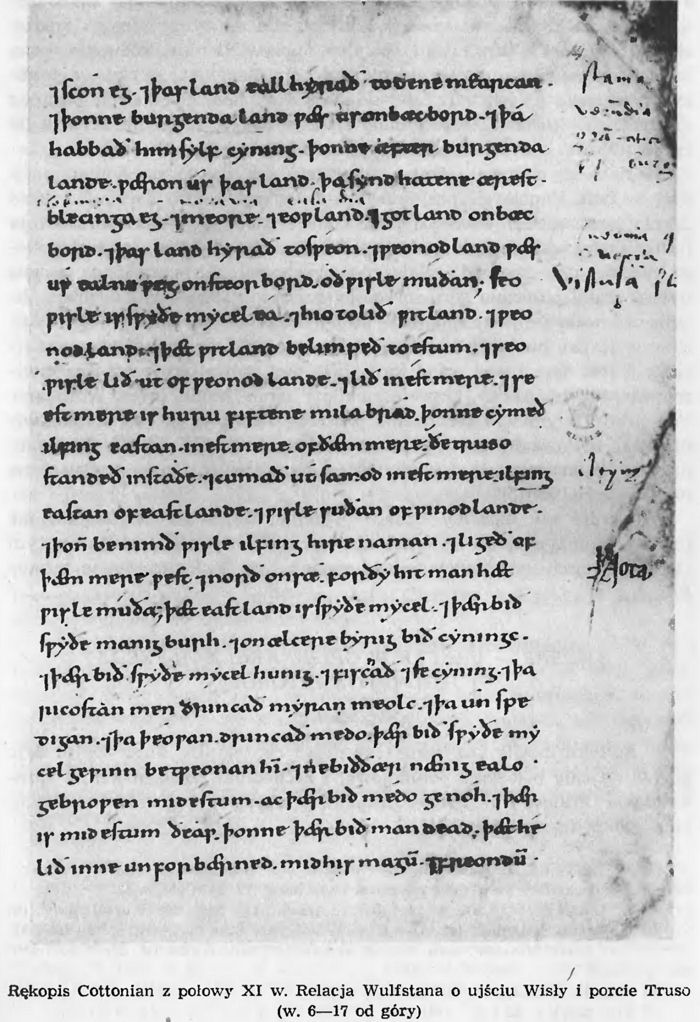 ⁊ scon eg. ⁊ þas land eall hyrað to dene mearcan.
⁊ þonne burgenda land ƿæs us on bæcbord. ⁊ þa
habbað him sylf cyning. þonne æfter burgenda
lande. ƿæron us þas land. þa synd hatene ærest.
blecinga eg. ⁊ meore. ⁊ eoƿland. ⁊ gotland on bæc
bord. ⁊ þas land hyrað to sƿeon. ⁊ ƿeonodland ƿæs
us ealne ƿeg on steorbord. oð ƿisle muðan; seo
Vistula
ƿisle is sƿyðe mycel ea. ⁊ hio tolið ƿitland. ⁊ ƿeo
nodland. ⁊ þæt ƿitland belimpeð to estum. ⁊ seo
ƿisle lið ut of ƿeonodlande. ⁊ lið in estmere. ⁊ se
estmere is huru fiftene mila brad. þonne cymeð
ilfing eastan. in estmere. of ðæm mere. ðe truso
standeð in staðe. ⁊ cumað ut samod in estmere. ilfing
eastan of eastlande. ⁊ ƿisle suðan of ƿinodlande.
⁊ þoñ benimð ƿisle ilfing hire naman. ⁊ ligeð of
þæm mere ƿest. ⁊ norð on sæ. forðy hit man hæt
Nota
ƿisle muða; þæt eastland is sƿyðe mycel. ⁊ þær bið
sƿyðe manig burh. ⁊ on ælcere byrig bið cyningc.
⁊ þær bið sƿyðe mycel hunig. ⁊ fiscað ⁊ se cyning. ⁊ þa
ricostan men drincað myran meolc. ⁊ þa un spe
digan. ⁊ þa þeoƿan. drincað medo. þær bið sƿyðe my
cel geƿinn betƿeonan hī. ⁊ ne bið ðær nænig ealo
gebroƿen mid estum. ac þær bið medo genoh. ⁊ þær
is mid estum ðeaƿ. þonne þær bið man dead. þæt he
lið inne unforbærned. mid his magū. ⁊ freondū.
Rękopis Cottonian z połowy XI w. Relacja Wulfstana o ujściu Wisły i porcie Truso
(w. 6—17 od góry)